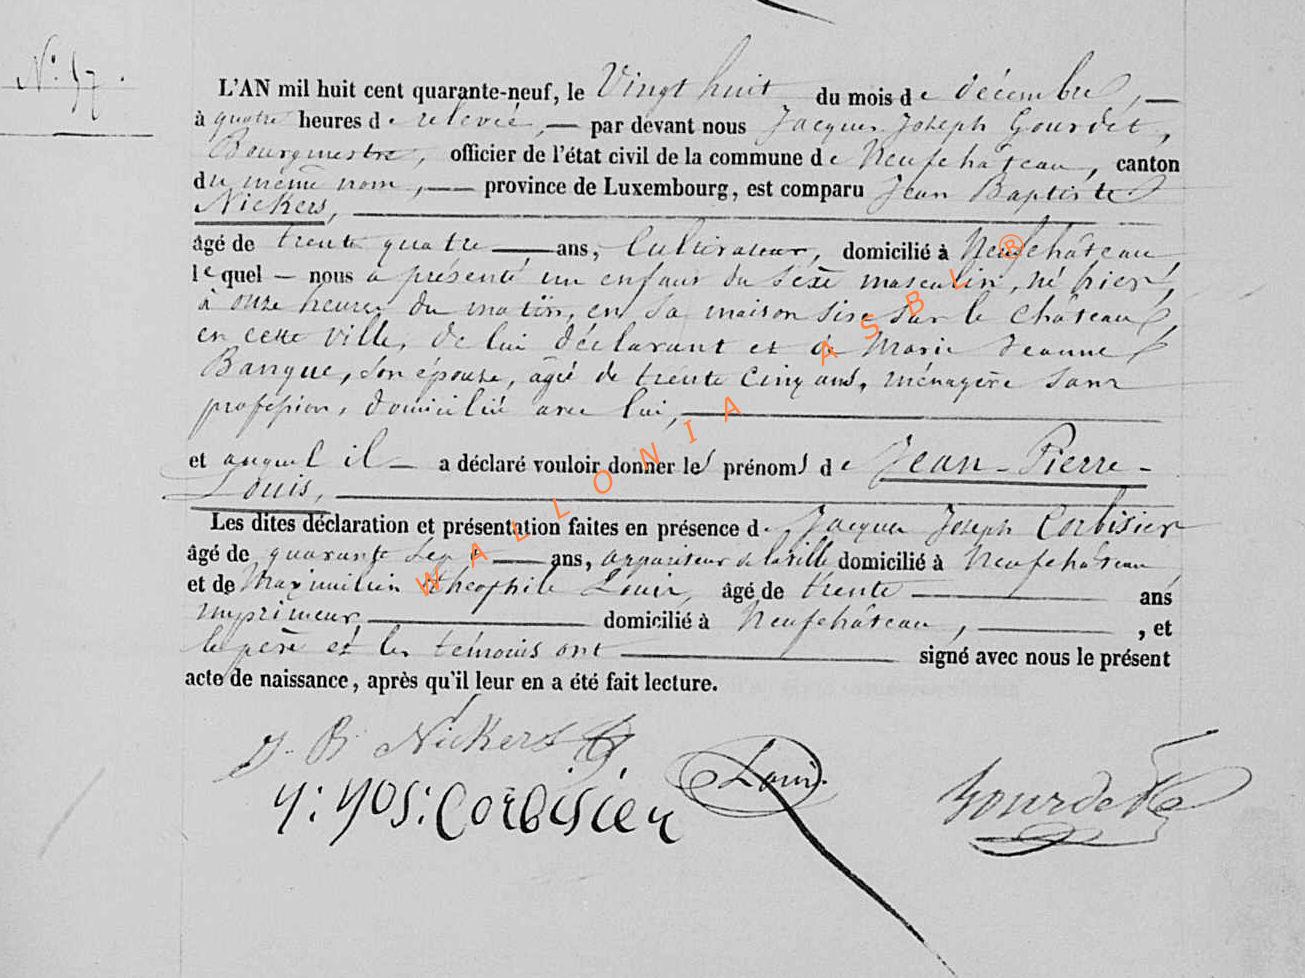 N.° 57.
L'AN mil huit cent quarante-neuf, le Vingt huit du mois de décembre, —
à quatre heures de relevée, — par devant nous Jacques Joseph Gourdet,
Bourgmestre, officier de l'état civil de la commune de Neufchâteau, canton
du même nom, — province de Luxembourg, est comparu Jean Baptiste
Nickers, —
âgé de trente quatre — ans, Cultivateur, domicilié à Neufchâteau,
lequel — nous a présenté un enfant du sexe masculin, né hier,
à onze heures du matin, en sa maison sise sur le Château,
en cette ville, de lui déclarant et de Marie Jeanne
Banque, son épouse, agée de trente cinq ans, ménagère sans
profession, domiciliée avec lui, —
et auquel il — a déclaré vouloir donner les prénoms de Jean-Pierre-
Louis, —
Les dites déclaration et présentation faites en présence de Jacques Joseph Corbisier
âgé de quarante sept — ans, appariteur de la ville domicilié à Neufchâteau,
et de Maximilien Théophile Louis, âgé de trente — ans
imprimeur — domicilié à Neufchâteau, — , et
le père et les témoins ont — signé avec nous le présent
acte de naissance, après qu'il leur en a été fait lecture.
J. B. Nickers
J: Jos: Corbisier
Louis.
Gourdet
WALLONIA ASBL ®